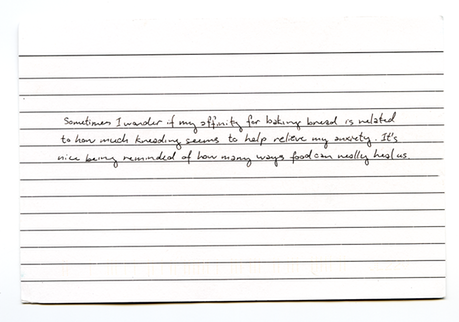 Sometimes I wonder if my affinity for baking bread is related
to how much kneading seems to help relieve my anxiety. It's
nice being reminded of how many ways food can really heal us.